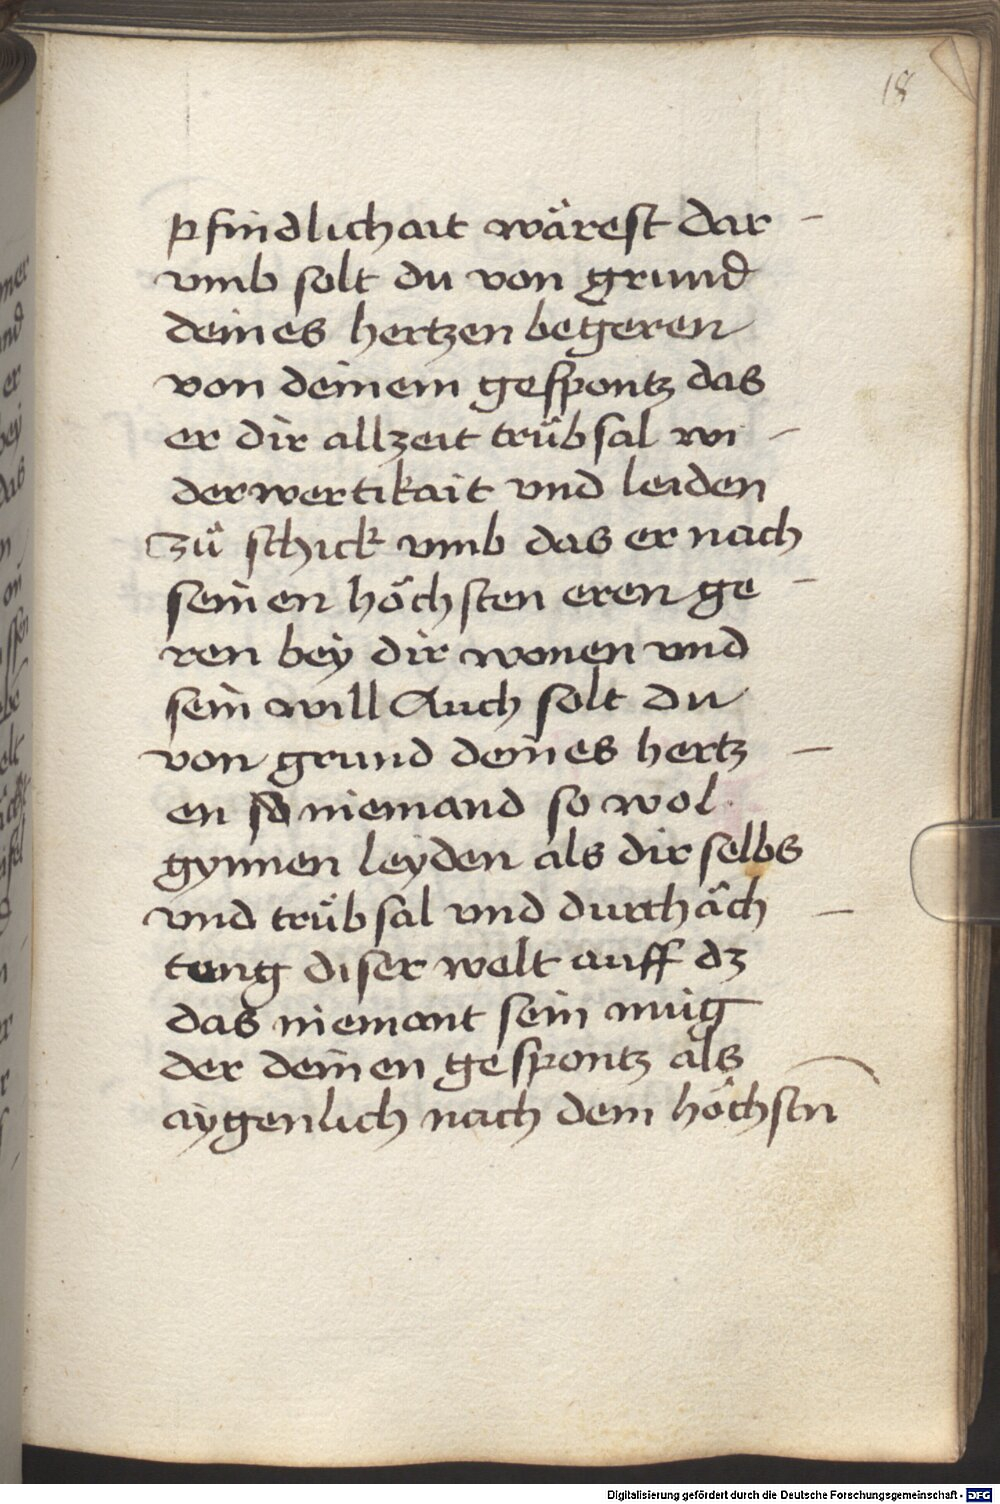 18
pfindlichait wärest dar –
vmb solt du von grund
deines hertzen begeren
von deinem gespontz das
er dir allzeit trübsal wi –
derwertikait vnd leiden
zů schick vmb das er nach
seinen höchsten eren ge –
ren bey dir wonen vnd
sein will Auch solt du
von grund deines hertz –
en so niemand so wol
gynnen leyden als dir selbs
vnd trübsal vnd durchäch –
tung diser welt auff dz
das niemant sein mug
der deinen gespontz als
aygenlich nach dem höchstn̄
Digitalisierung gefördert durch die Deutsche Forschungsgemeinschaft - DFG